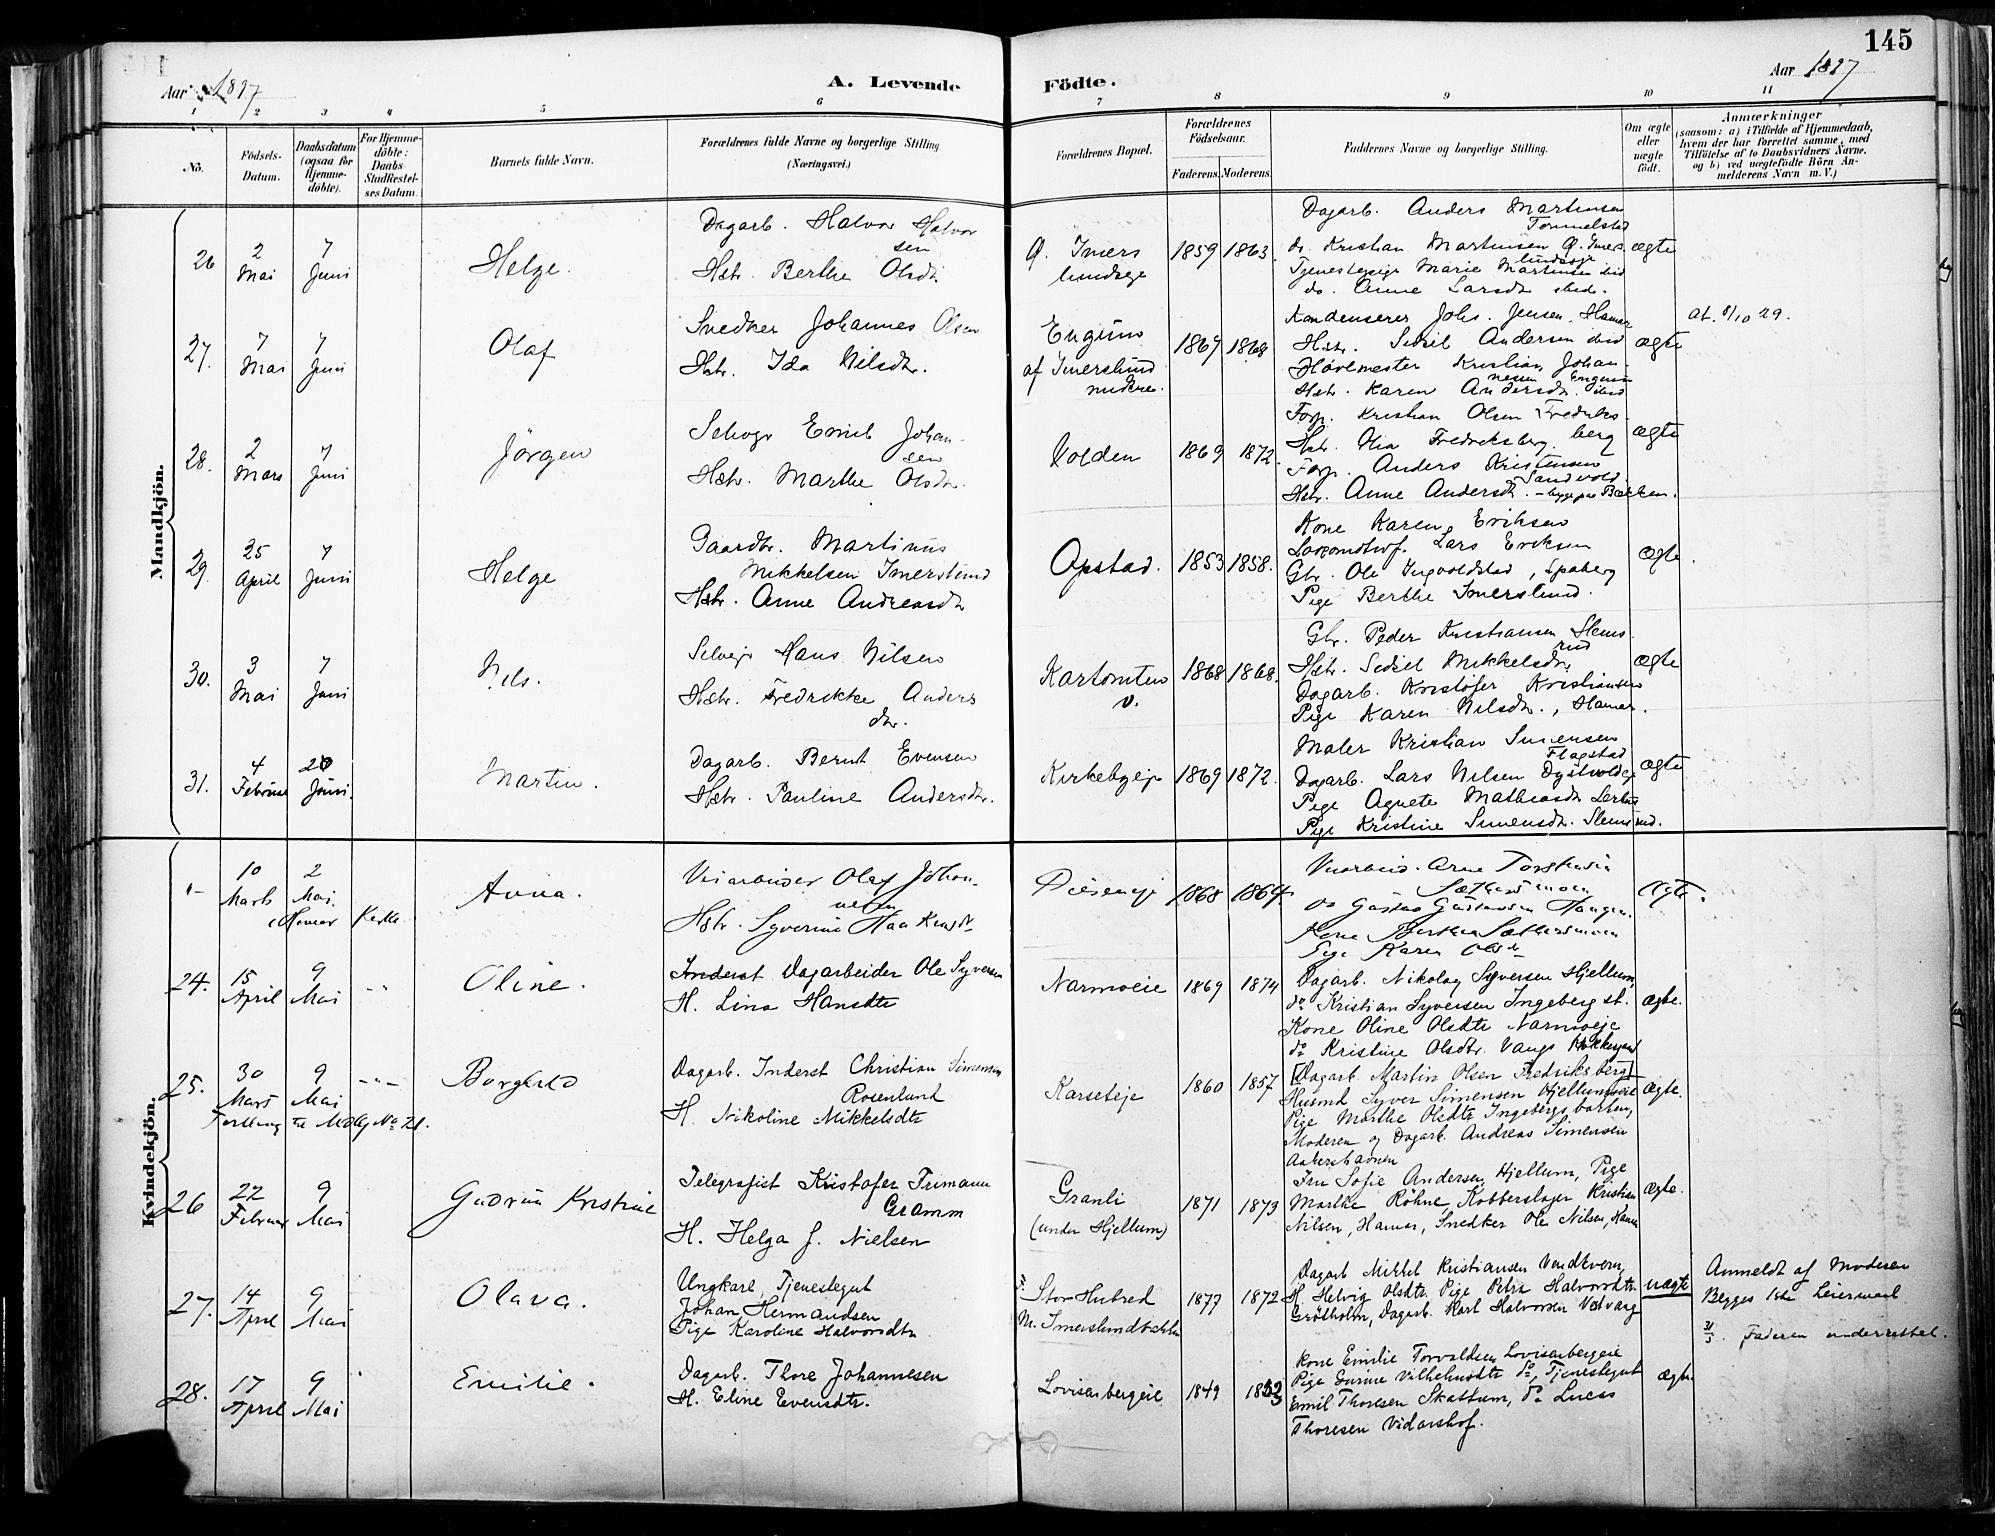 145
Aar 1897
A. Levende Födte.
Aar 1897
1 2 3 4 5 6 7 8 9 10 11
No.
Födsels-
Datum.
Daabsdatum
(ogsaa for
Hjemme-
döbte).
For Hjemme-
döbte:
Daabs
Stadfæstel-
ses Datum.
Barnets fulde Navn.
Forældrenes fulde Navne og borgerlige Stilling
(Næringsvei.)
Forældrenes Bopæl.
Forældrenes
Födselsaar.
Faderens. Moderens.
Faddernes Navne og borgerlige Stilling.
Om ægte
eller
uægte
födt.
Anmærkninger
(saasom: a) i Tilfælde af Hjemmedaab,
hvem der har forrettet samme, med
Tilföielse af to Daabsvidners Navne.
og b) ved uægtefödte Börn An-
melderens Navn m. V.)
Mandkjön.
26
2
Mai
7
Juni
Helge.
Dagarb. Halvor Halvor
sen
Hstr. Berthe Olsdtr.
Ø. Imers
lundseje
1859 1863.
Dagarb. Anders Martinsen
Tommelstad
do. Kristian Martinsen Ø. Imers
lundseje
Tjenestepige Marie Martinsen ibid
do. Anne Larsdtr. ibid.
ægte
27.
7
Mai
7
Juni
Olaf
Snedker Johannes Olsen
Hstr. Ida Nilsdtr.
Engum
af Imerslund
nedre.
1867 1868
Kondenserer Johs. Jensen, Hamar
Hstr. Sidsel Andersen ibid
Hövlemester Kristian Johan-
nessen Engum
Hstr. Karen Andersdtr. ibid
ægte
at. 8/10 29.
28.
2
Mars
7
Juni
Jörgen
Selveger Emil Johan-
sen
Hstr. Marthe Olsdtr.
Volden
1869 1872.
Forp. Kristian Olsen Fredriks-
berg
Hstr. Olia Fredriksberg.
Forp. Anders Kristensen
Sandvold
Hstr. Anne Andersdtr. Bækken.
ægte
29.
25
April
7
Juni
Helge
Gaardbr. Martinus
Mikkelsen Imerslund
Hstr. Anne Andreasdtr
Opstad.
1853 1858.
Kone Karen Eriksen
Lokomotivf. Lars Eriksen
Gbr. Ole Ingvoldstad, Spaberg
Pige Berthe Imerslund.
ægte.
30.
3
Mai
7
Juni
Nils.
Selvejer Hans Nilsen
Hstr. Fredrikke Anders
dtr.
Kartomten
v.
1868 1868.
Gbr. Peder Kristiansen Slems-
rud
Hstr. Sidsel Mikkelsdtr.
Dagarb. Kristofer Kristiansen
Pige Karen Nilsdtr., Hamar.
ægte
31.
4
Februar
20
Juni.
Martin.
Dagarb. Bernt Evensen
Hstr. Pauline Andersdtr.
Kirkebyeje
1869 1872.
Maler Kristian Simensen
Flagstad
Dagarb. Lars Nilsen Dystvoldeje
Pige Agnete Mathiasdtr
Pige Kristine Simensdtr. Slemsrud.
ægte
Kvindekjön.
"-
10
Marts
2
Mai.
i Hamar Kirke
Anna.
Veiarbeider Olaf Johan-
nesen
Hstr. Syverine Haakensdtr
1868 1864.
Veiarbeid. Arne Torstensen
Sæthersmoen
do Gustav Gustavsen Haugen.
Kone Berthea Sæthersmoen
Pige Karen Olsdtr
Ægte.
24.
15
April
9
Mai
"-
Oline.
Inderst Dagarbeider Ole Syversen
H. Lina Hansdtr
Narmoeie
1869 1874
Dagarb. Nikolay Syversen Hjellum,
do Kristian Syversen Ingeberg st.
Kone Oline Olsdtr Narmoeje
do Kristine Olsdtr. Vangs
ægte.
25.
30
Mars
9
Mai
-"-
Borghild
Dagarb. Inderst Christian Simensen
Rosenlund
H. Nikoline Mikkelsdtr
Karseteje
1860 1857
[Dagarb. Martin Olsen Fredriksberg]
Husmd Syver Simensen Hjellumseie
Pige Marthe Olsdtr Ingebergsbakken,
Moderen og Dagarb. Andreas Simensen
Aakershavnen
ægte.
26
22
Februar
9
Mai
Gudrun Kristine
Telegrafist Kristofer Frimann
Gramm
H. Helga J. Nielsen
Granli
(under Hjellum)
1871 1873
Fru Sofie Andersen, Hjellum, Pige
Marthe Röhne, Kobberslager Kristian
Nilsen, Hamar, Snedker Ole Nilsen, Hamar
ægte.
27.
14
April
9
Mai
Olava.
Ungkarl, Tjenestegut
Johan Hermandsen
Pige Karoline Halvorsdtr.
F. Stor Hubred
M. Imerslundbakken
1877 1872
Dagarb Mikkel Kristiansen Vendkvern,
H. Helvig Olsdtr. Pige Petra Halvorsdtr.
Grötholm, Dagarb. Karl Halvorsen Vedvang
uægte
Anmeldt af Moderen
Begges 1ste Leiermaal
31/5. Faderen underrettet.
28.
17
April
9
Mai
Emilie.
Dagarb. Thore Johannesen
H. Eline Evensdtr.
Lovisenbergeie
1849 1853
Kone Emilie Torvaldsen Lovisenbergeie
Pige Gurine Vilhelmsdtr do, Tjenestegut
Emil Thoresen Skattum, do Lucas
Thoresen Vidarshof.
ægte